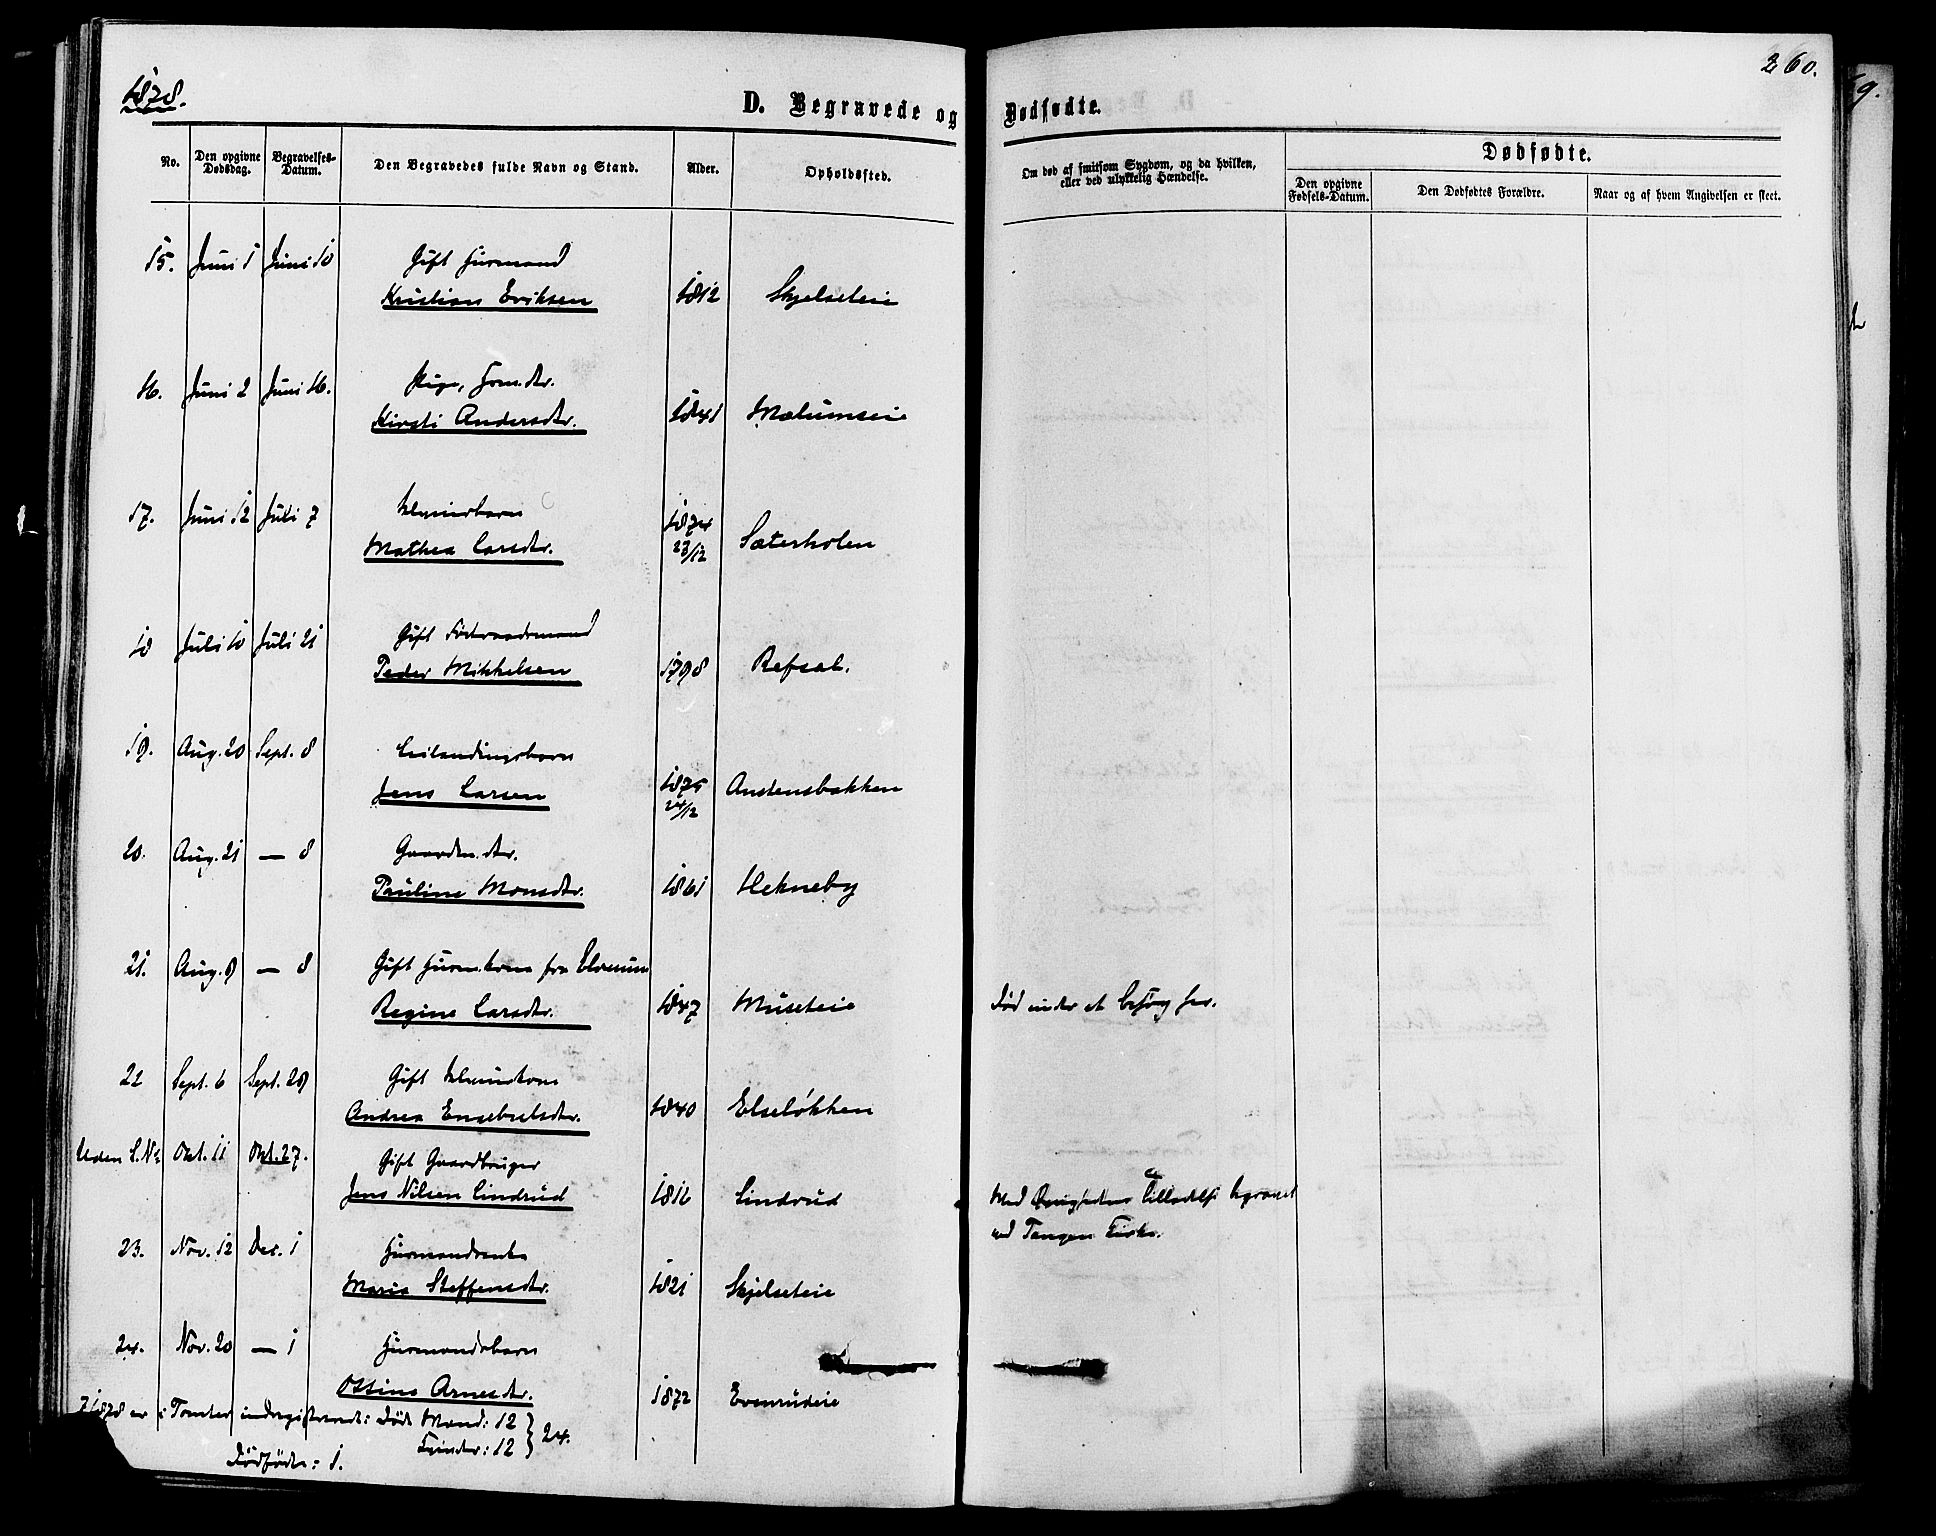 1878.
260.
D. Begravede og Dødfødte.
No.
Den opgivne Dødsdag.
Begravelses-Datum.
Den Begravedes fulde Navn og Stand.
Alder.
Opholdssted.
Om død af smitsom Sygdom, og da hvilken,
eller ved ulykkelig Hændelse.
Dødfødte.
Den opgivne Fødsels-Datum.
Den Dødfødtes Forældre.
Naar og af hvem Angivelsen er skeet.
15. Juni 1 Juni 10 Gift Husmand
Kristian Eriksen 1812 Skjelseteie
16. Juni 2 Juni 16. Pige,
Kirsti Andersdtr. 1841 Mælumseie
17. Juni 12 Juli 7
Mathea Larsdtr. 1874 23/12 Sæterholen
18 Juli 10 Juli 21 Gift Føderaadsmand
Peder Mikkelsen 1798 Refsal.
19. Aug. 20 Sept. 8 Leilændingsbarn
Jens Larsen 1875 24/12 Austensbakken
20. Aug. 21 — 8 Gaardm. dtr.
Pauline Monsdtr. 1861 Hekneby
21. Aug. 9 — 8 Gift Husm.kone fra Elverum
Regine Larsdtr. 1847 Museteie Død under et besøg her.
22 Sept. 6 Sept. 29 Gift
Andrea Engebretsdtr. 1840 Elseløkken
Uden L. No Okt. 11 Okt. 27. Gift Gaardbruger
Jens Nilsen Lindrud 1816 Lindrud Med Tilladelse begravet
ved Tangen Kirke.
23. Nov. 12 Dec. 1 Husmandsenke
Maria Steffensdtr. 1821 Skjelseteie
24. Nov. 20 — 1 Husmandsbarn
Ottine Arnesdtr. 1872 Evenrudeie
I 1878 er i Tomter indregistreret: Døde Mænd: 12 } 24.
Kvinder: 12
Dødfødte: 1.